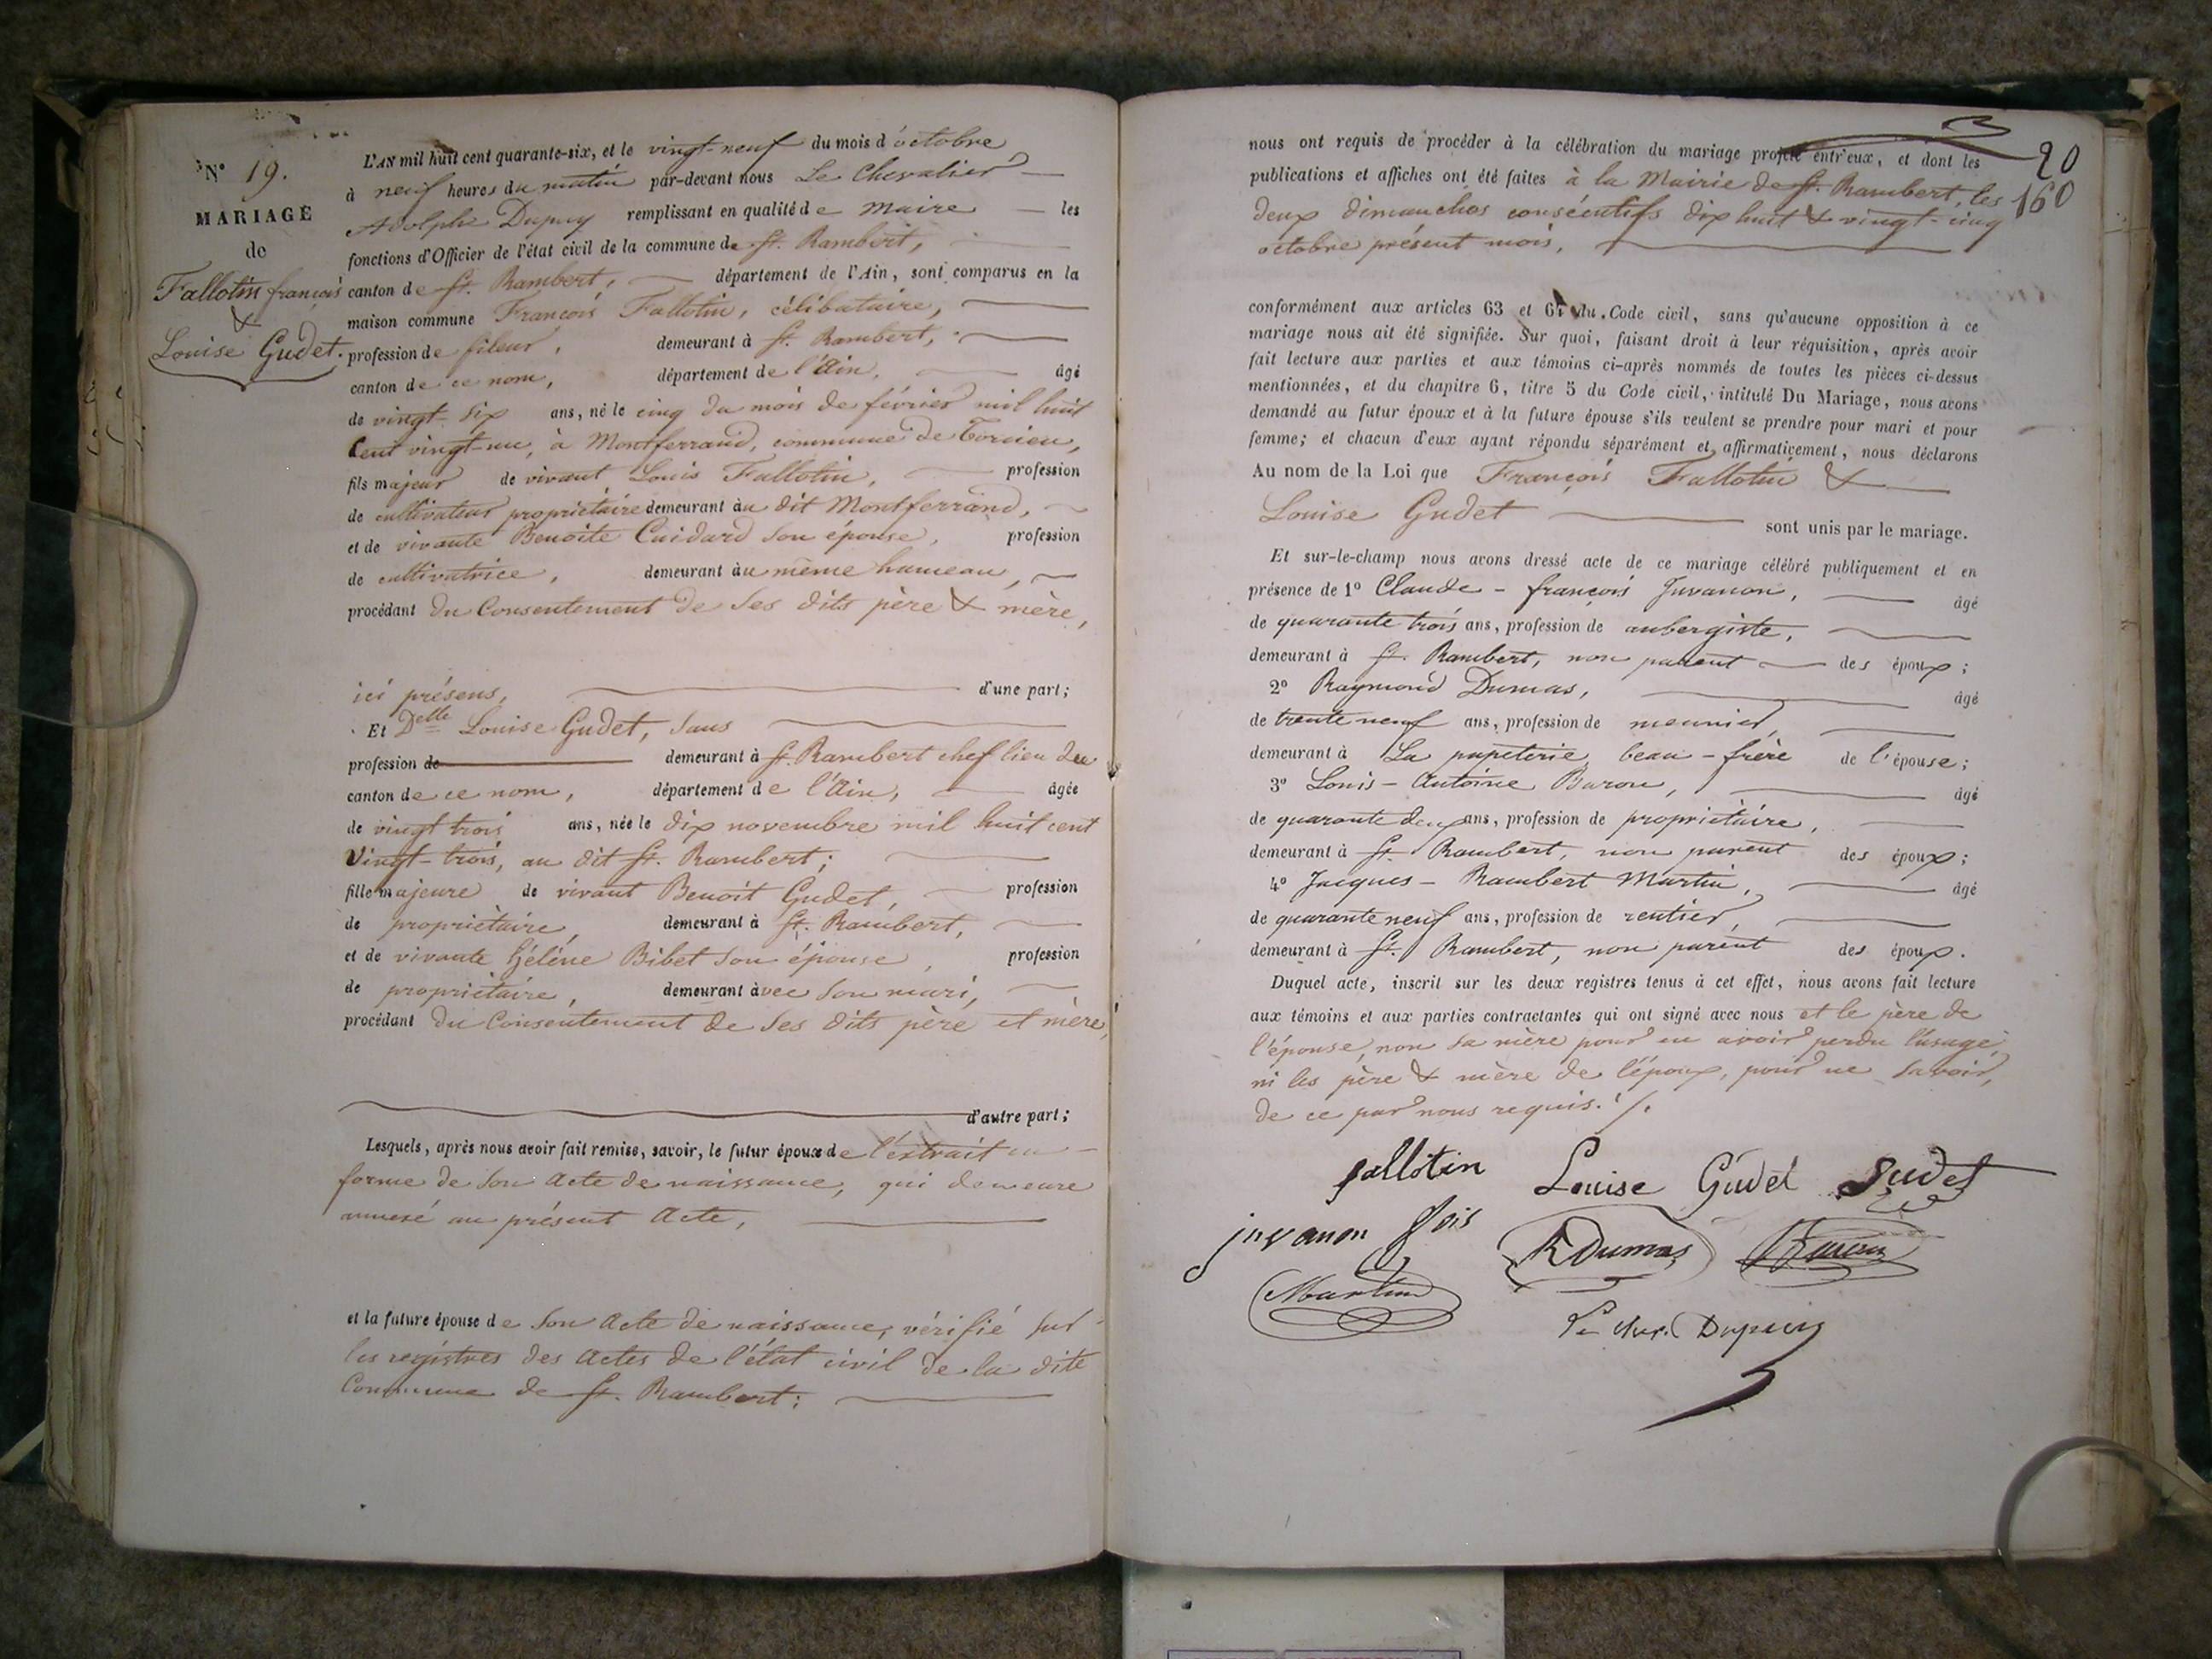 N° 19.
MARIAGE
de
Fallotin françois
&
Louise Gudet.
L'AN mil huit cent quarante-six, et le vingt-neuf du mois d'octobre
à neuf heures du matin par-devant nous Le Chevalier
Adolphe Dupuy remplissant en qualité de Maire les
fonctions d'Officier de l'état civil de la commune de St. Rambert,
canton de St. Rambert, département de l'Ain, sont comparus en la
maison commune François Fallotin, célibataire,
profession de fileur, demeurant à St. Rambert,
canton de ce nom, département de l'Ain, âgé
de vingt-six ans, né le cinq du mois de février mil huit
Cent vingt-un, à Montferrand, commune de Torcieu,
fils majeur de vivant Louis Fallotin, profession
de cultivateur propriétaire demeurant au dit Montferrand,
et de vivante Benoite Cuidard son épouse, profession
de cultivatrice, demeurant au même hameau,
procédant du Consentement de ses dits père & mère,
ici présens, d'une part;
Et Delle Louise Gudet, sans
profession de demeurant à St. Rambert chef lieu du
canton de ce nom, département de l'Ain, âgée
de vingt trois ans, née le dix novembre mil huit cent
vingt-trois, au dit St. Rambert;
fille majeure de vivant Benoit Gudet, profession
de propriètaire, demeurant à St. Rambert,
et de vivante Hélène Bibet son épouse, profession
de propriètaire, demeurant avec son mari,
procédant du Consentement de ses dits père et mère,
d'autre part;
Lesquels, après nous avoir fait remise, savoir, le futur époux de l'extrait en
forme de son acte de naissance, qui demeure
annexé au présent acte,
et la future épouse de son acte de naissance, vérifié sur
les registres des actes de l'état civil de la dite
Commune de St. Rambert;
20
160
nous ont requis de procéder à la célébration du mariage projeté entr'eux, et dont les
publications et affiches ont été faites à la Mairie de St. Rambert, les
deux dimanches consécutifs dix huit & vingt-cinq
octobre présent mois,
conformément aux articles 63 et 64 du Code civil, sans qu'aucune opposition à ce
mariage nous ait été signifiée. Sur quoi, faisant droit à leur réquisition, après avoir
fait lecture aux parties et aux témoins ci-après nommés de toutes les pièces ci-dessus
mentionnées, et du chapitre 6, titre 5 du Code civil, intitulé Du Mariage, nous avons
demandé au futur époux et à la future épouse s'ils veulent se prendre pour mari et pour
femme; et chacun d'eux ayant répondu séparément et affirmativement, nous déclarons
Au nom de la Loi que François Fallotin &
Louise Gudet sont unis par le mariage.
Et sur-le-champ nous avons dressé acte de ce mariage célébré publiquement et en
présence de 1° Claude-françois Juvanon, âgé
de quarante trois ans, profession de aubergiste,
demeurant à St. Rambert, non parent des époux;
2° Raymond Dumas, âgé
de trente neuf ans, profession de meunier,
demeurant à La papeterie, beau-frère de l'épouse;
3° Louis-Antoine Baron, âgé
de quarante deux ans, profession de propriètaire,
demeurant à St. Rambert, non parent des époux;
4° Jacques-Rambert Martin, âgé
de quarante neuf ans, profession de rentier,
demeurant à St. Rambert, non parent des époux.
Duquel acte, inscrit sur les deux registres tenus à cet effet, nous avons fait lecture
aux témoins et aux parties contractantes qui ont signé avec nous et le père de
l'épouse, non sa mère pour en avoir perdu l'usage,
ni les père & mère de l'époux, pour ne savoir,
de ce par nous requis.
fallotin Louise Gudet Gudet
juvanon fois R Dumas Baron
Martin
Le cher. Dupuy